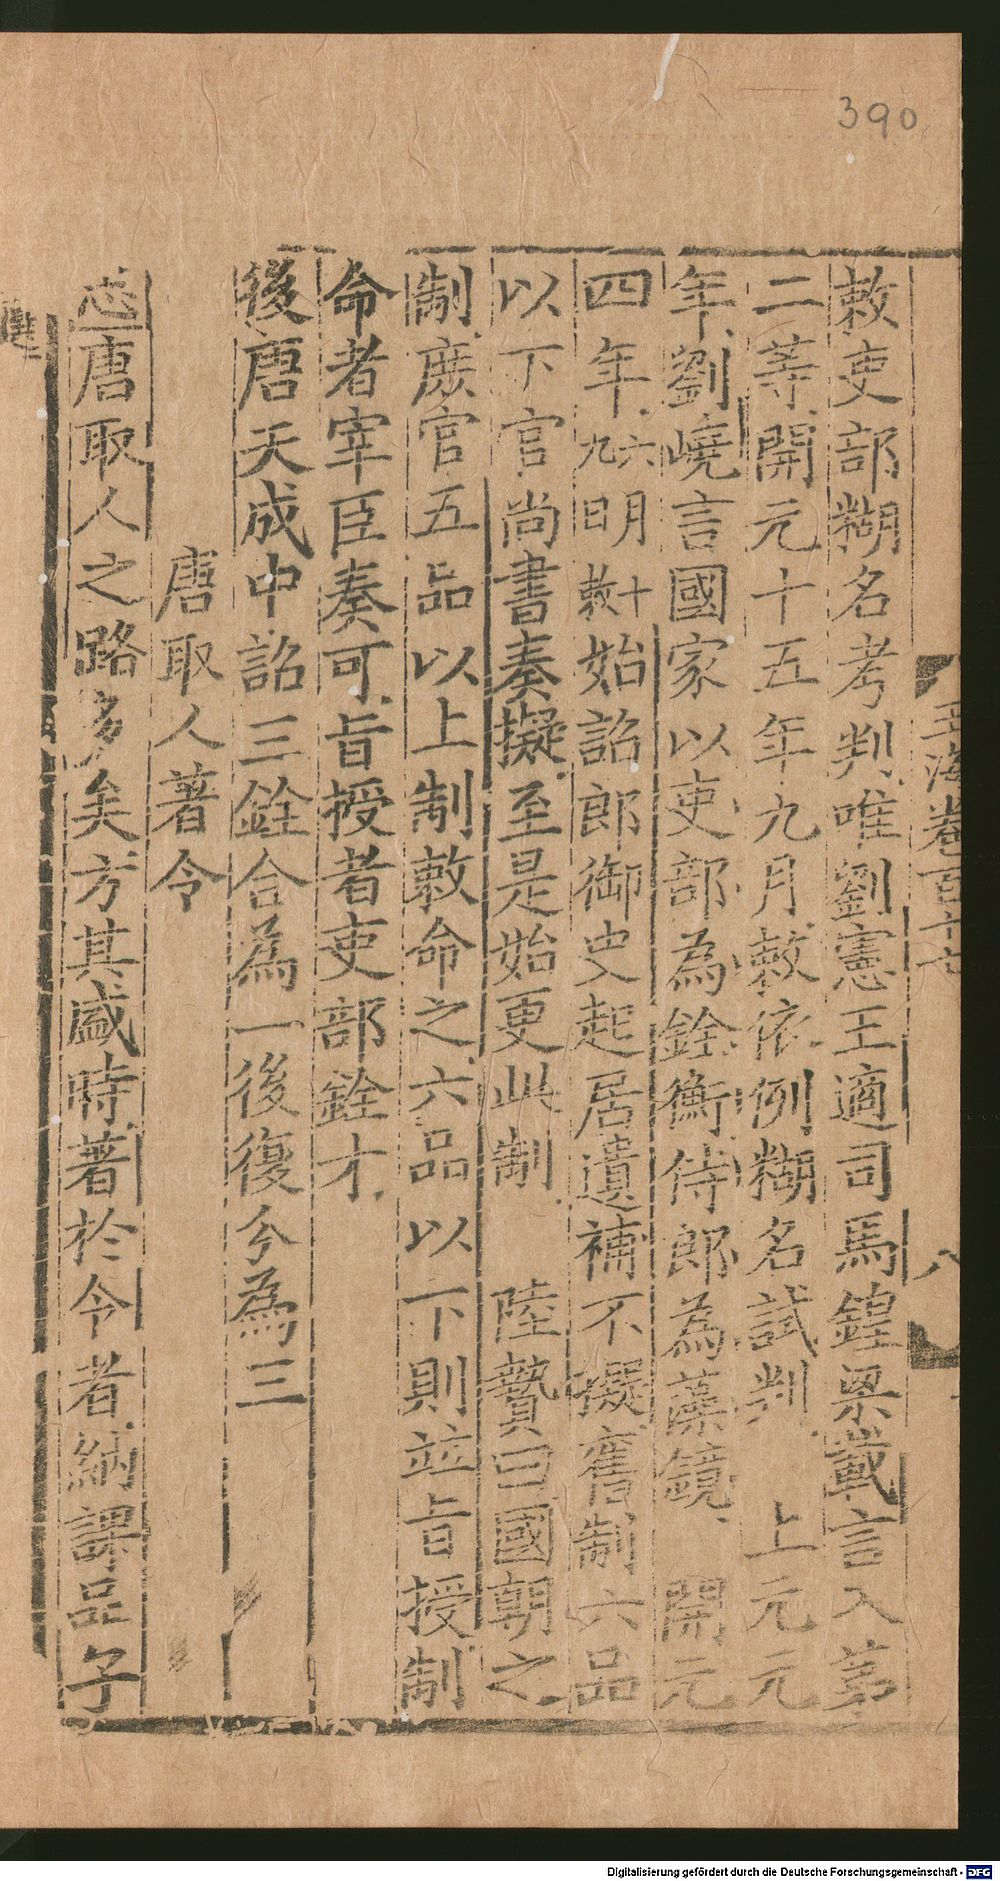 390
玉海卷百十六
八
敕吏部糊名考判唯劉憲王適司馬鍠梁載言入第
二等開元十五年九月敕依例糊名試判　上元元
年劉嶢言國家以吏部為銓衡侍郎為藻鏡　開元
四年六月十九日明敕始詔郎御史起居遺補不擬舊制六品
以下官尚書奏擬至是始更此制　陸贄曰國朝之
制庶官五品以上制敕命之六品以下則並旨授制
命者宰臣奏可旨授者吏部銓才
後唐天成中詔三銓合為一後復分為三
唐取人著令
志唐取人之路多矣方其盛時著於令者納課品子
Digitalisierung gefördert durch die Deutsche Forschungsgemeinschaft - DFG